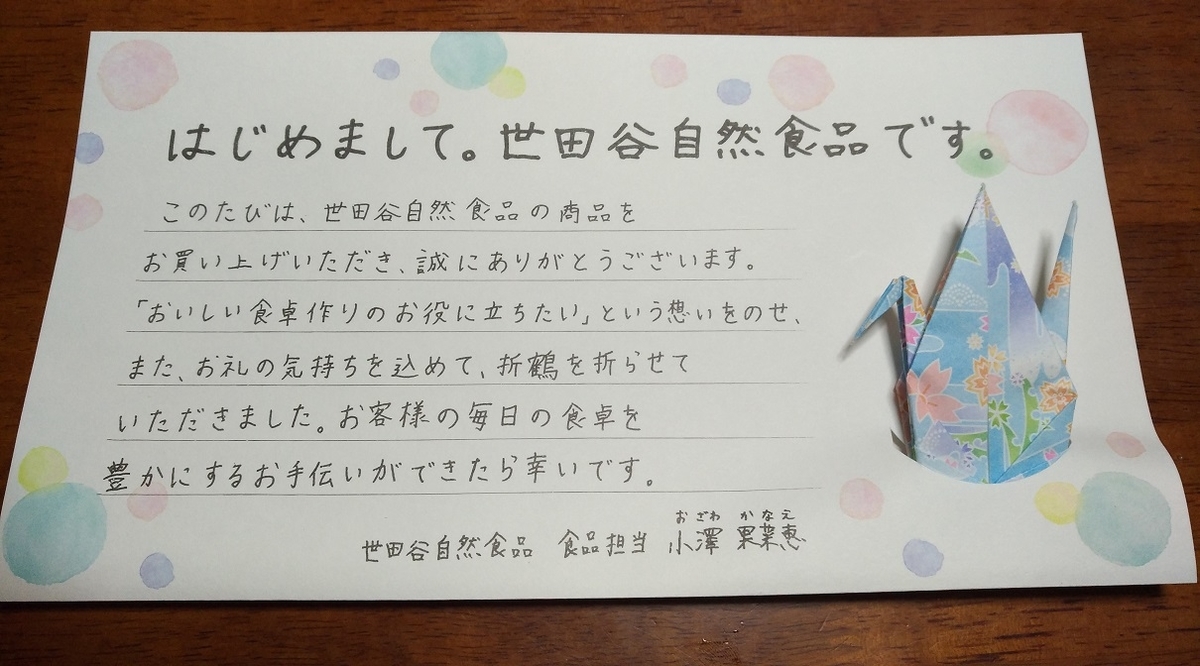 はじめまして。世田谷自然食品です。
このたびは、世田谷自然食品の商品を
お買い上げいただき、誠にありがとうございます。
「おいしい食卓作りのお役に立ちたい」という想いをのせ、
また、お礼の気持ちを込めて、折鶴を折らせて
いただきました。お客様の毎日の食卓を
豊かにするお手伝いができたら幸いです。
おざわ かなえ
世田谷自然食品 食品担当 小澤 果菜恵